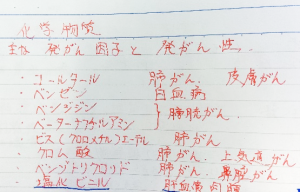 化学物質
主な発がん因子と発がん性.
・コールタール 肺がん. 皮膚がん
・ベンゼン 白血病
・ベンジジン
・ベーターナフチルアミン } 膀胱がん
ビス(クロロメチル)エーテル 肺がん
・クロム酸 肺がん. 上気道がん
・ベンゾトリクロリド 肺がん. 鼻腔がん
・塩化ビニール 肝血管肉腫